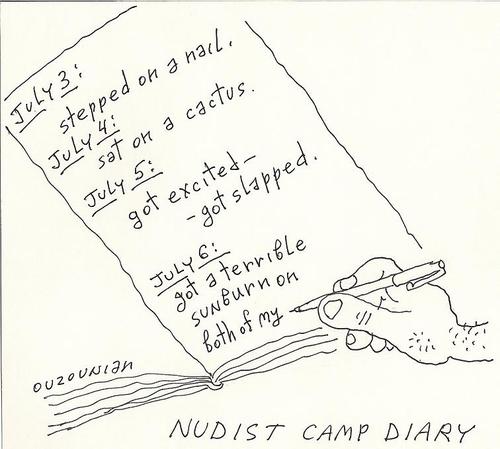 July 3:
stepped on a nail.
July 4:
sat on a cactus.
July 5:
got excited-
-got slapped.
July 6:
got a terrible
sunburn on
both of my
OUZOUNIAN
NUDIST CAMP DIARY